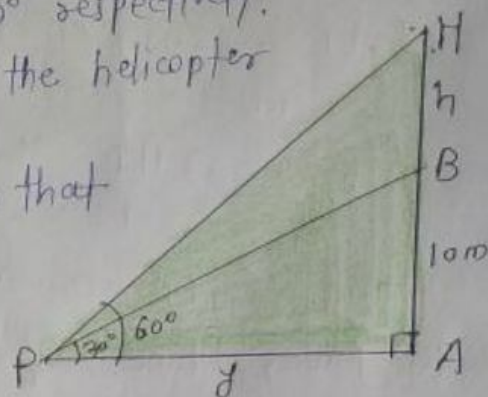 0° respectively.
the helicopter
that
H
h
B
10m
60°
30°
P
A
y